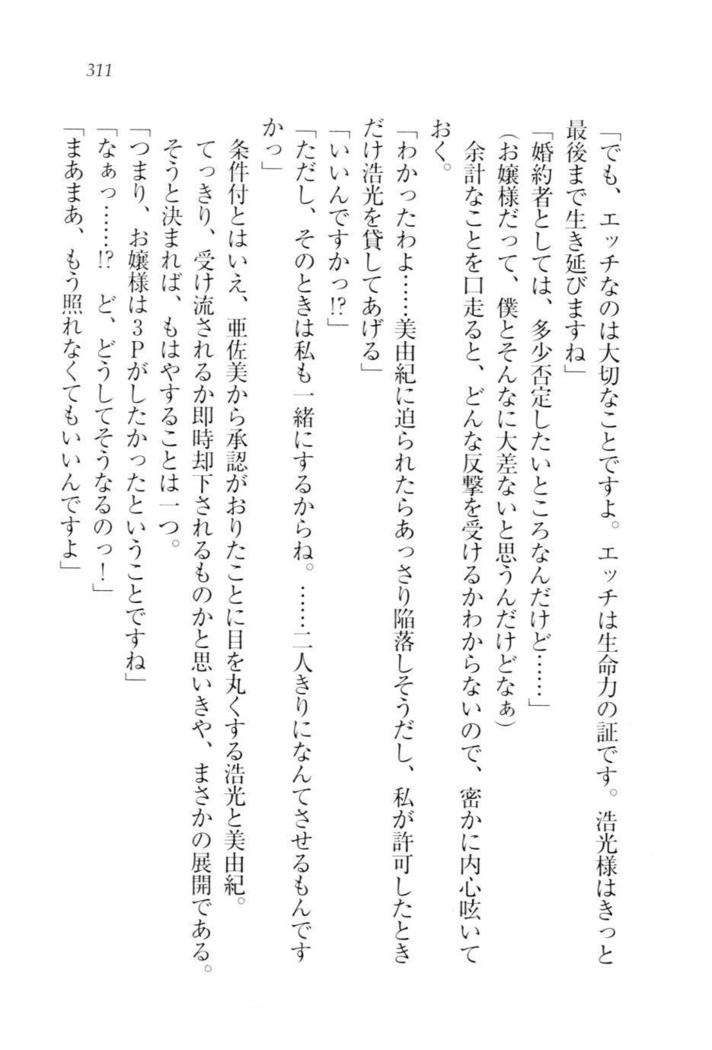 311
「でも、エッチなのは大切なことですよ。エッチは生命力の証です。浩光様はきっと
最後まで生き延びますね」
「婚約者としては、多少否定したいところなんだけど……」
（お嬢様だって、僕とそんなに大差ないと思うんだけどなぁ）
余計なことを口走ると、どんな反撃を受けるかわからないので、密かに内心呟いて
おく。
「わかったわよ……美由紀に迫られたらあっさり陥落しそうだし、私が許可したとき
だけ浩光を貸してあげる」
「いいんですかっ!?」
「ただし、そのときは私も一緒にするからね。……二人きりになんてさせるもんです
かっ」
条件付とはいえ、亜佐美から承認がおりたことに目を丸くする浩光と美由紀。
てっきり、受け流されるか即時却下されるものかと思いきや、まさかの展開である。
そうと決まれば、もはやすることは一つ。
「つまり、お嬢様は３Ｐがしたかったということですね」
「なぁっ……!?　ど、どうしてそうなるのっ！」
「まあまあ、もう照れなくてもいいんですよ」